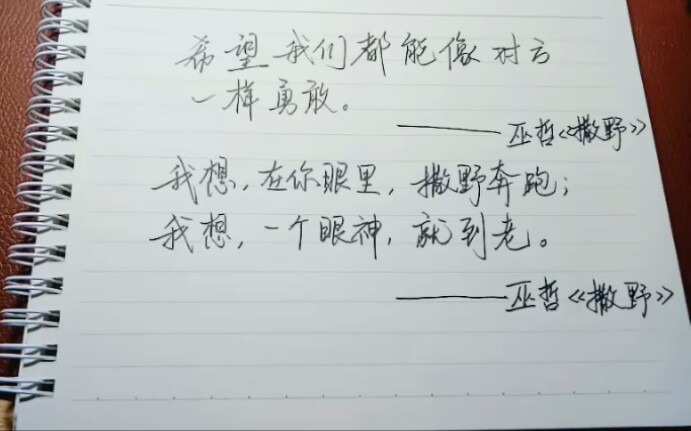 希望我们都能像对方
一样勇敢。
——巫哲《撒野》
我想,在你眼里,撒野奔跑;
我想,一个眼神,就到老。
——巫哲《撒野》